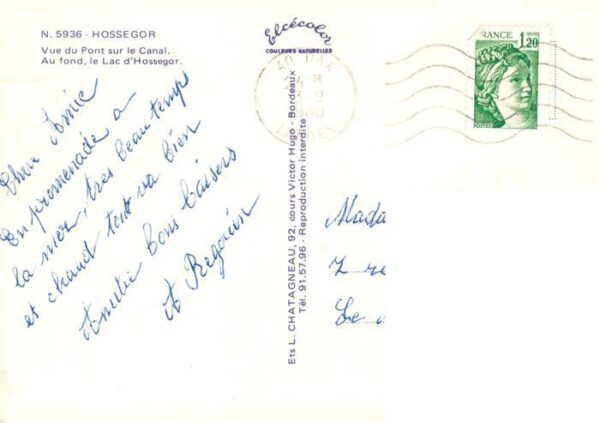 N. 5936 - HOSSEGOR
Vue du Pont sur le Canal.
Au fond, le Lac d'Hossegor.
Elcécolor
COULEURS NATURELLES
Chère Amie
En promenade a
la mer, très beau temps
et chaud tout va bien
Amitié bons baisers
A
Ets L. CHATAGNEAU, 92, cours Victor Hugo - Bordeaux
Tél. 91.57.96 - Reproduction interdite
40 DAX
LANDES
FRANCE
1,20
POSTES
Mada